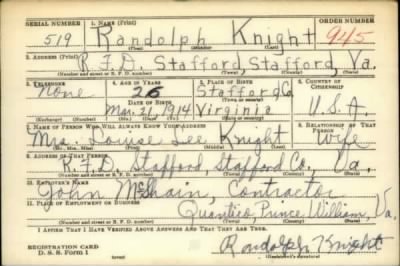 SERIAL NUMBER 1. NAME (Print) ORDER NUMBER
519 Randolph Knight 945
(First) (Middle) (Last)
2. ADDRESS (Print)
R.F.D. Stafford, Stafford, Va.
(Number and street or R. F. D. number) (Town) (County) (State)
3. TELEPHONE 4. AGE IN YEARS 5. PLACE OF BIRTH 6. COUNTRY OF CITIZENSHIP
None 26 Stafford Co
DATE OF BIRTH (Town or county)
Mar. 31, 1914 Virginia U.S.A.
(Exchange) (Number) (Mo.) (Day) (Yr.) (State or country)
7. NAME OF PERSON WHO WILL ALWAYS KNOW YOUR ADDRESS 8. RELATIONSHIP OF THAT PERSON
Mrs. Louise Lee Knight Wife
(Mr., Mrs., Miss) (First) (Middle) (Last)
9. ADDRESS OF THAT PERSON
R.F.D. Stafford, Stafford Co., Va.
(Number and street or R. F. D. number) (Town) (County) (State)
10. EMPLOYER'S NAME
John McShain, Contractor
11. PLACE OF EMPLOYMENT OR BUSINESS
Quantico, Prince William, Va.
(Number and street or R. F. D. number) (Town) (County) (State)
I AFFIRM THAT I HAVE VERIFIED ABOVE ANSWERS AND THAT THEY ARE TRUE.
REGISTRATION CARD
D. S. S. Form 1 Randolph Knight
(over) (Registrant's signature)